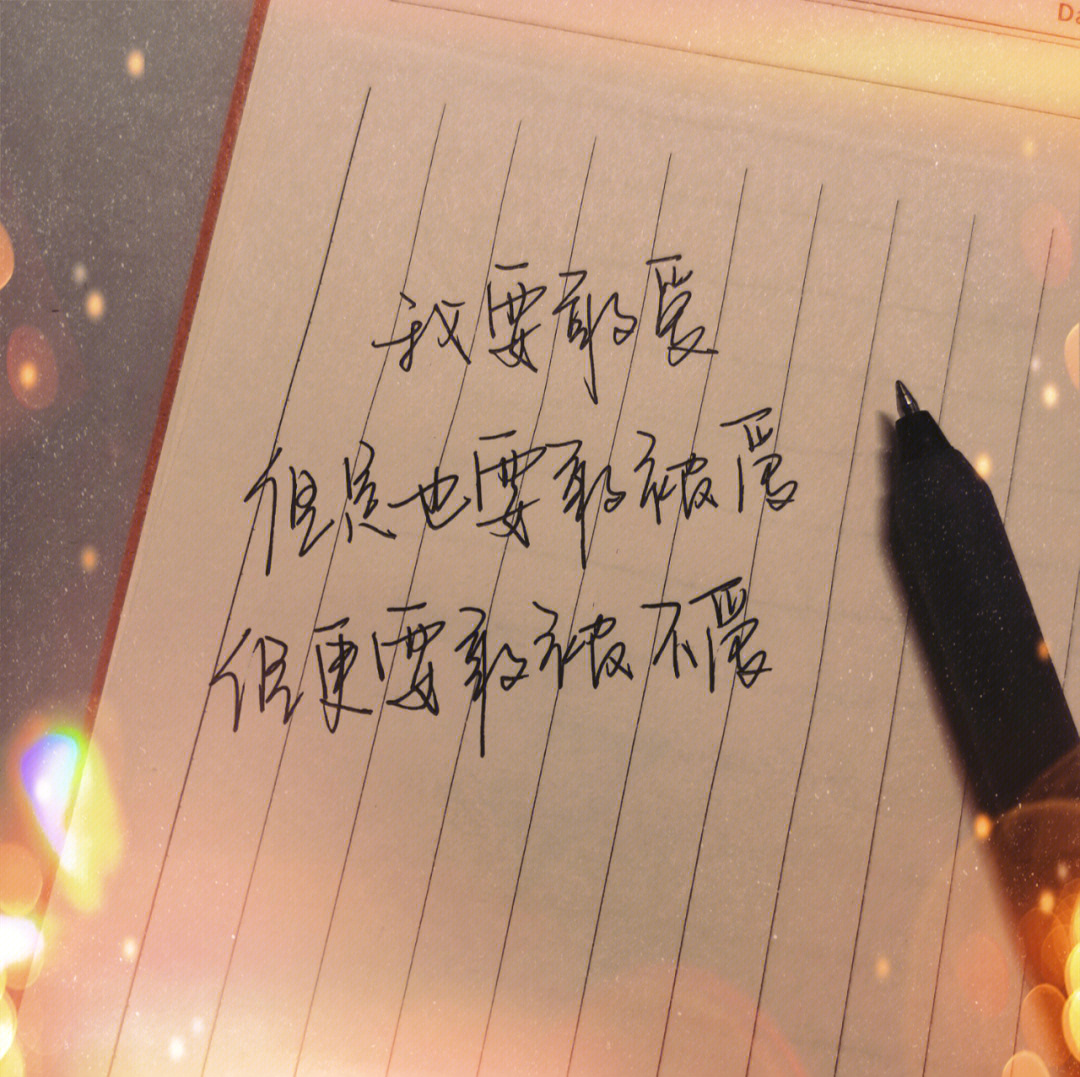 Da
我要敢爱
但是也要敢被爱
但更要敢被不爱